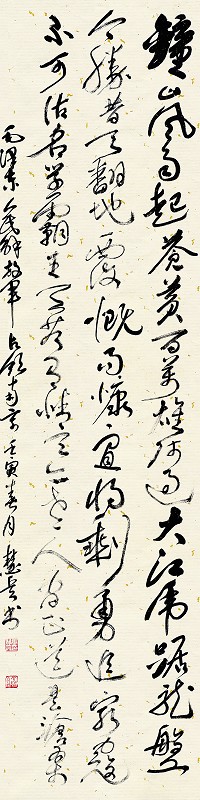 鐘山风雨起蒼黄百萬雄师过大江虎踞龙盤
今勝昔天翻地覆慨而慷宜将剩勇追窮寇
不可沽名学霸王天若有情天亦老人间正道是滄桑
毛泽东人民解放軍占领南京壬寅春月慧书